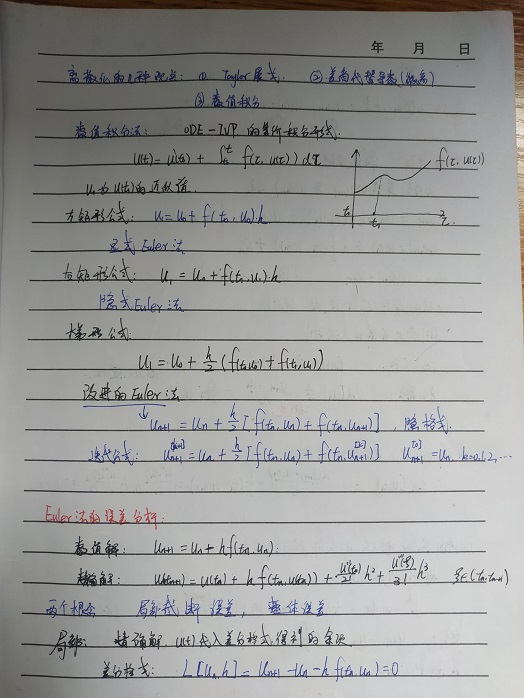 年 月 日
离散化的几种观点: ① Taylor展式. ② 差商代替导数(微商)
③ 数值积分
数值积分法: ODE-IVP 的等价积分形式.
u(t) = u(t₀) + ∫ₜ₀ᵗ f(τ, u(τ)) dτ
f(τ, u(τ))
t₀ t₁ τ
u₁为 u(t₁)的近似值.
左矩形公式: u₁ = u₀ + f(t₀, u₀)·h
显式 Euler 法
右矩形公式: u₁ = u₀ + f(t₁, u₁)·h
隐式 Euler 法
梯形公式:
u₁ = u₀ + h/2 (f(t₀,u₀) + f(t₁,u₁))
改进的 Euler 法
↓ uₙ₊₁ = uₙ + h/2 [f(tₙ, uₙ) + f(tₙ, uₙ₊₁)] , 隐格式.
迭代公式: uₙ₊₁^[k+1] = uₙ + h/2 [f(tₙ, uₙ) + f(tₙ, uₙ₊₁^[k])] uₙ₊₁^[0] = uₙ, k=0,1,2,...
Euler 法的误差分析:
数值解: uₙ₊₁ = uₙ + h f(tₙ, uₙ).
精确解: u(tₙ₊₁) = u(tₙ) + h f(tₙ, u(tₙ)) + u''(tₙ)/2! h² + u'''(ξ)/3! h³ ξ∈(tₙ, tₙ₊₁)
两个概念 局部截断误差, 整体误差
局部: 精确解 u(t)代入差分格式, 得到的余项
差分格式: L[uₙ, h] = uₙ₊₁ - uₙ - h f(tₙ, uₙ) = 0